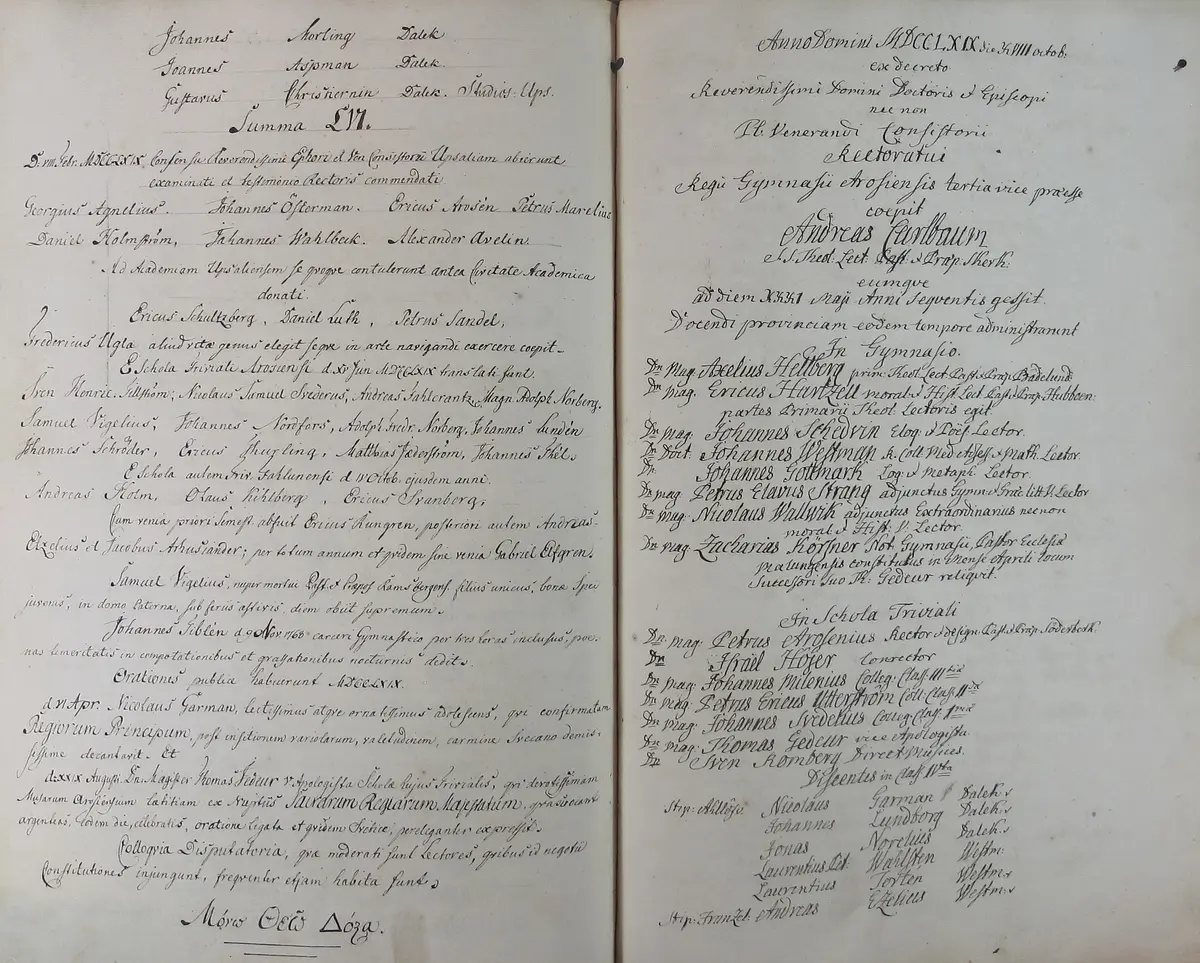 Johannes Morling Dalek
Joannes Aspman Dalek.
Gustavus Chrishernin Dalek. Studios. Ups.
Summa LVI.
D. VIII Febr. MDCCLXIX Consensu Reverendissimi Ephori et Ven Consistorii Upsaliam abierunt
examinati et testimonio Rectoris commendati
Georgius Agnelius. Johannes Österman. Ericus Arosén Petrus Marelius
Daniel Holmström, Johannes Wahlbeck. Alexander Avelin.
Ad Academiam Upsaliensem se qvoqve contulerunt antea Civitate Academica
donati.
Ericus Schultzberg, Daniel Luth, Petrus Sandel,
Fredericus Ugla aliud vitæ genus elegit seqve in arte navigandi exercere coepit.
E Schola Triviali Arosiensi d. XV Jun MDCCLXIX translati sunt.
Sven Henric. Nicolaus Samuel Svederus, Andreas Fahlcrantz, Magn. Adolph Norberg.
Samuel Vigelius, Johannes Nordfors, Adolph Fredr. Norberg, Johannes Lindén
Johannes Schröder, Ericus Matthias Federström, Johannes
E Schola autem Triv. Fahlunensi d Octob. ejusdem anni.
Andreas Holm, Olaus Kihlberg, Ericus Svanberg.
Cum venia priori Semest. abfuit Ericus Rungren, posteriori autem Andreas
et Jacobus per totum annum et qvidem sine venia Gabriel Elfgren.
Samuel Vigelius, nuper mortui Past. & Præpos. filius unicus, bonæ Spei
juvenis, in domo Paterna, sub feriis æstivis, diem obiit supremum.
Johannes Tiblén d. 9 Nov 1768 carceri Gymnastico per tres horas inclusus poe-
nas temeritatis in compotationibus et grassationibus nocturnis dedit.
Orationes publice habuerunt MDCCLXIX.
Apr. Nicolaus Garman, lectissimus atqve ornatissimus adolescens, qvi confirmatam
Regiorum Principum, post insitionem variolarum, valetudinem, carmine Svecano demis-
sissime decantavit. Et
d. XXIX Augusti Dn. Magister Thomas Gedeur v. Apologista Scholæ hujus Trivialis, qvi devotissimam
Musarum Arosiensium lætitiam ex Nuptiis Sacrarum Regiarum Majestatum,
argenteas, eodem die, celebratis, oratione ligata et qvidem pereleganter expressit.
Colloqvia Disputatoria, qvæ moderati sunt Lectores, qvibus id negotii
Constitutiones injungunt, freqventer etjam habita sunt.
Μόνῳ Θεῷ Δόξα.
Anno Domini MDCCLXIX die XVIII octob:
ex decreto
Reverendissimi Domini Doctoris & Episcopi
nec non
Pl. Venerandi Consistorii
Rectoratui
Regii Gymnasii Arosiensis tertia vice præesse
coepit
Andreas Carlbaum
S. S. Theol. Lect. Past. & Præp. Skerk.
eumqve
ad diem XXXI Maji Anni Seqventis gessit.
Docendi provinciam eodem tempore administrarunt
In Gymnasio.
Dn. Mag. Axelius Hellberg prim. Theol. Lect. Past. & Præp. Badelund.
Dn. Mag. Ericus Hartzell moral. & Hist. Lect. Past. & Præp. Hubboen:
partes Primarii Theol. Lectoris egit.
Dn. Mag. Johannes Schedvin Eloq. & Poës. Lector.
Dn. Doct. Johannes Westman R. Coll. Med. Assess. & Math. Lector.
Dn. Johannes Gottmark Log. & Metaph. Lector.
Dn. Mag. Petrus Elavus Strang adjunctus Gymn. & Græc. litt. V. Lector
Dn. Mag. Nicolaus Wallwik adjunctus Extraordinarius nec non
moral. & Hist. V. Lector.
Dn. Mag. Zacharias Körsner Not. Gymnasii, Pastor Ecclesiæ
Malungensis constitutus in mense Aprili locum
Successori suo Th: Gedeur reliqvit.
In Schola Triviali
Dn. Mag. Petrus Arosenius Rector & design. Past. & Præp. Söderberk.
Dn Israël Höjer Conrector
Dn. Mag. Johannes Milenius Colleg. Class. IIItiæ
Dn. Mag. Petrus Ericus Utterström Coll. Class. IIdæ
Dn. Mag. Johannes Svedelius Colleg. Class. Imæ
Dn. Mag. Thomas Gedeur vice Apologista.
Dn. Sven Romberg Direct. Musices.
Discentes in Class. IVta
Stip: Nicolaus Garman Dalek.
Johannes Lundborg Dalek.
Jonas Norelius Dalek.
Laurentius Pet. Wahlsten Westm:
Laurentius Torten Westm.
Stip: Franzel: Andreas Ezelius Westm.